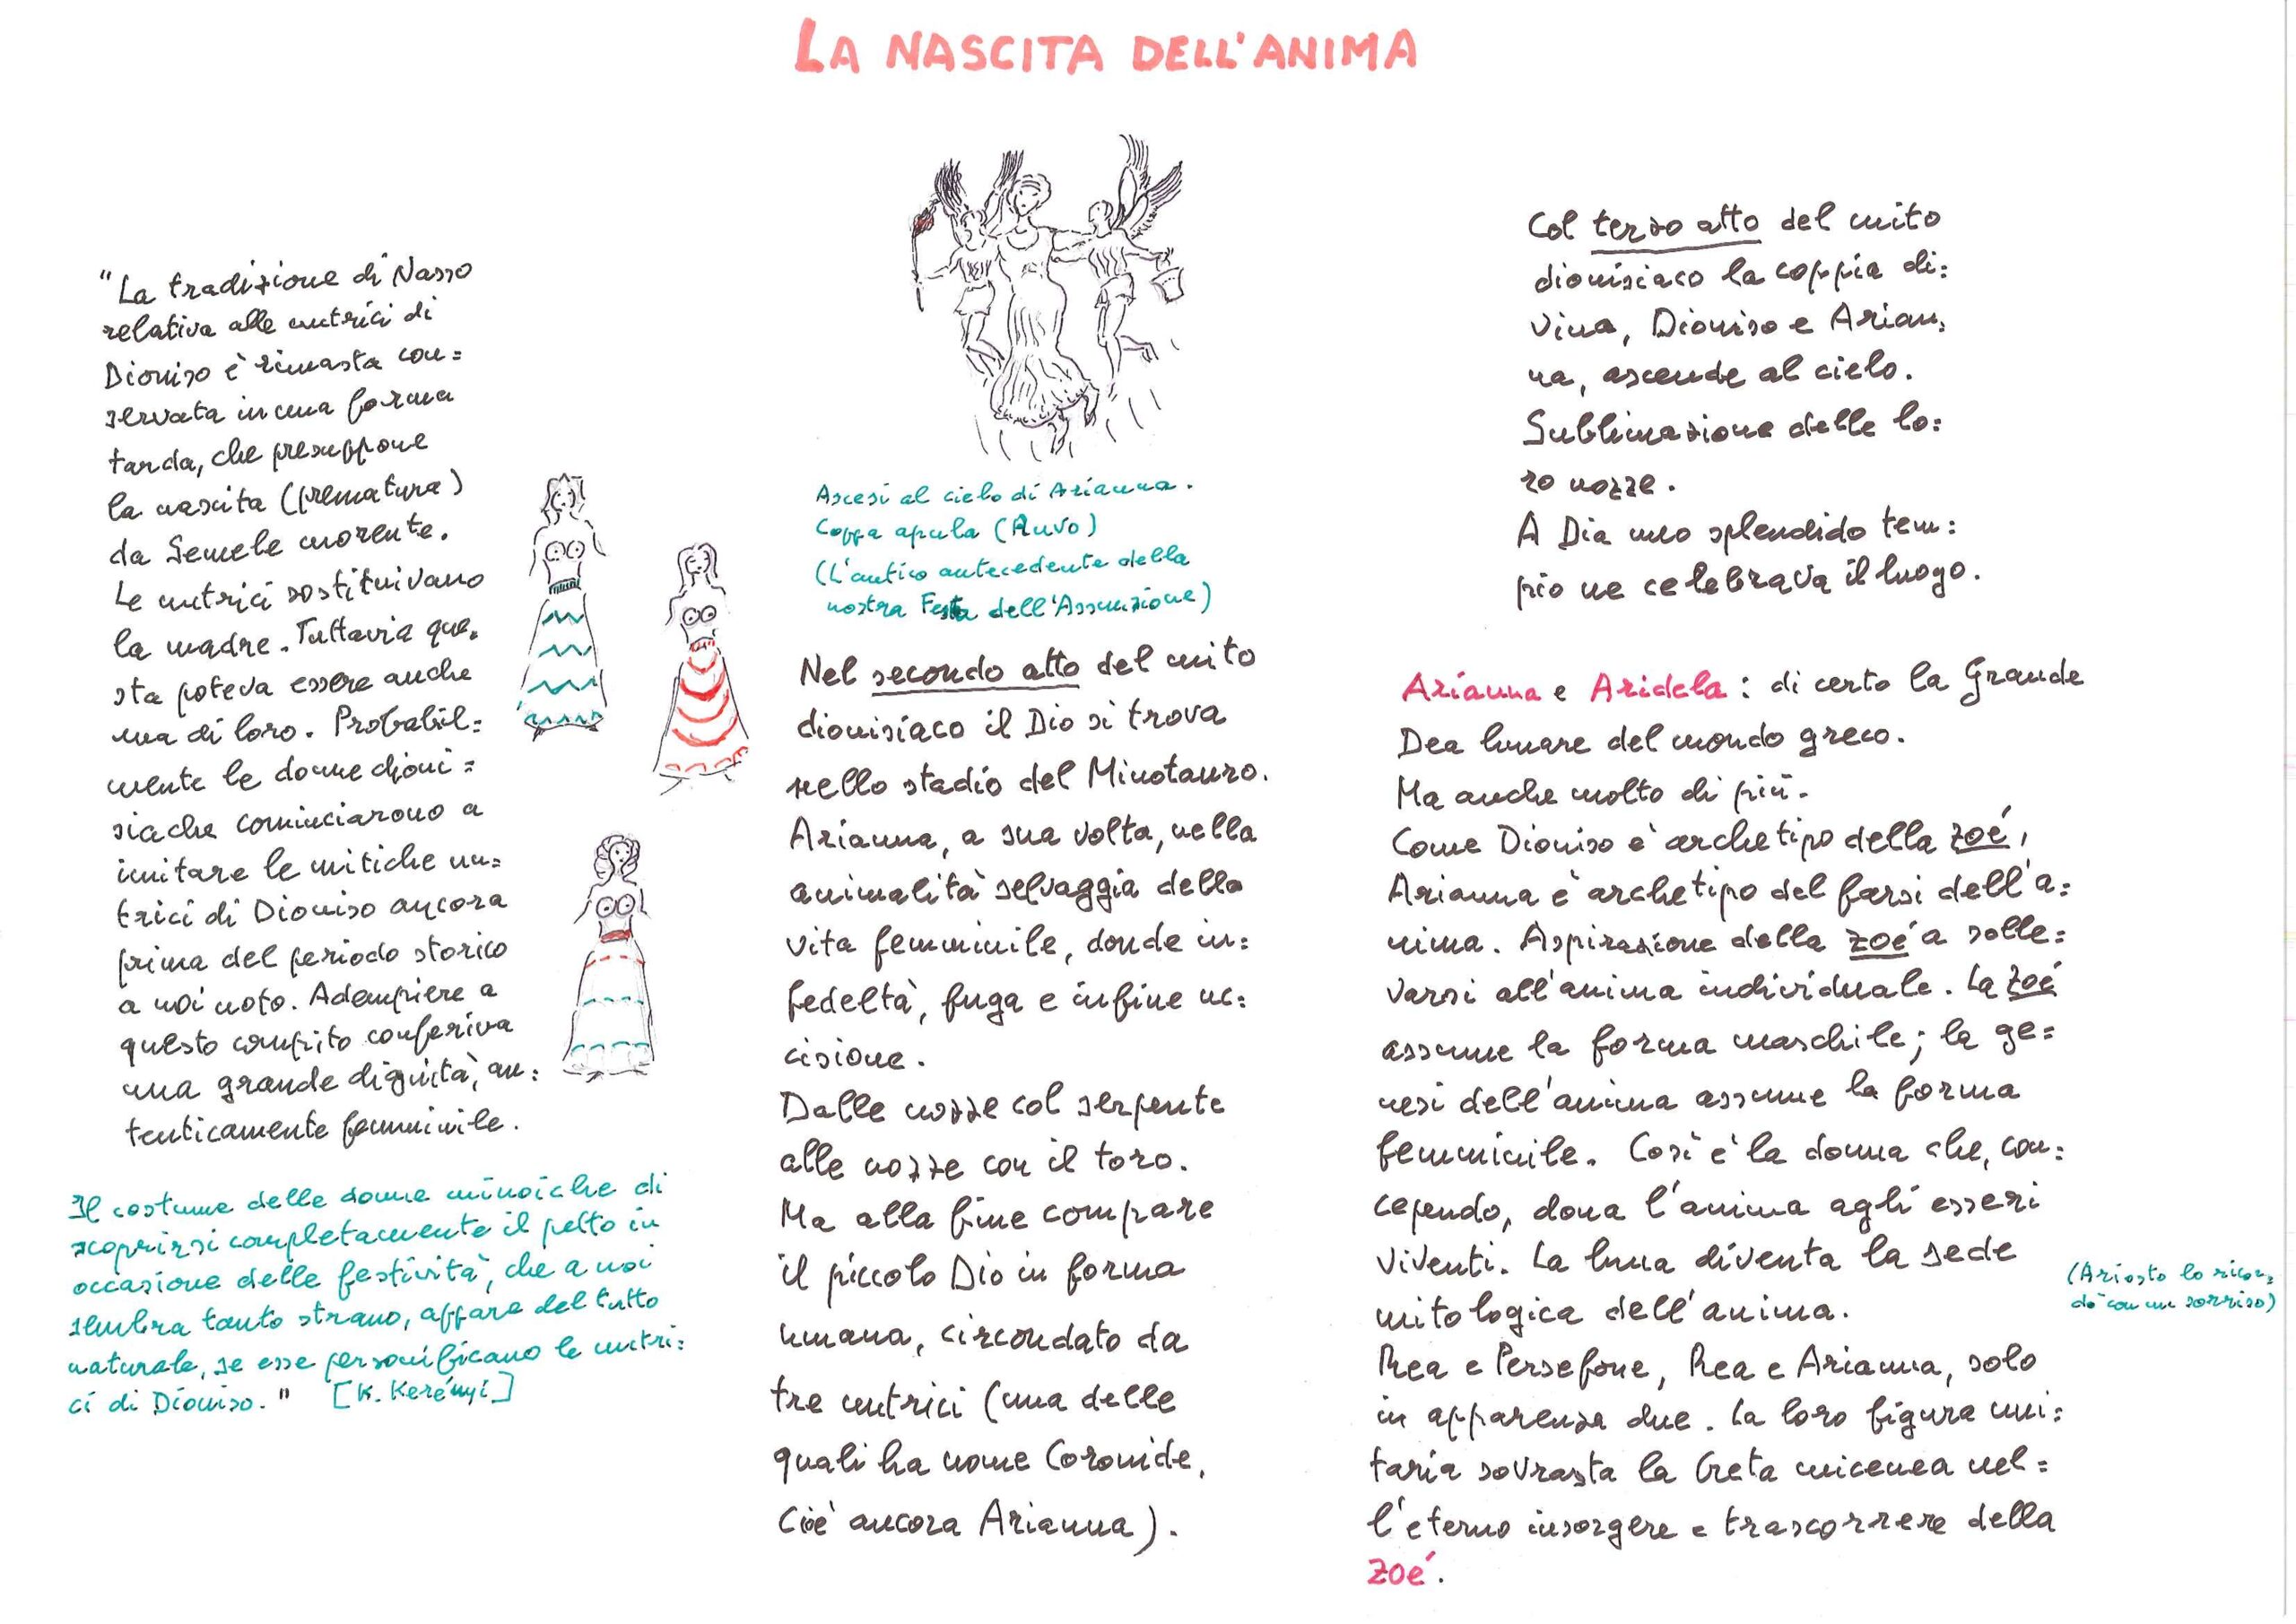 LA NASCITA DELL'ANIMA
"La tradizione di Nasso
relativa alle nutrici di
Dioniso è rimasta con=
servata in una forma
tarda, che presuppone
la nascita (prematura)
da Semele morente.
Le nutrici sostituivano
la madre. Tuttavia que=
sta poteva essere anche
una di loro. Probabil=
mente le donne dioni=
siache cominciarono a
imitare le mitiche nu=
trici di Dioniso ancora
prima del periodo storico
a noi noto. Adempiere a
questo compito conferiva
una grande dignità, au=
tenticamente femminile.
Il costume delle donne minoiche di
scoprirsi completamente il petto in
occasione delle festività, che a noi
sembra tanto strano, appare del tutto
naturale, se esse personificano le nutri=
ci di Dioniso." [K. Kerényi]
Ascesi al cielo di Arianna.
Coppa apula (Ruvo)
(L'antico antecedente della
nostra Festa dell'Assunzione)
Nel secondo atto del mito
dionisiaco il Dio si trova
nello stadio del Minotauro.
Arianna, a sua volta, nella
animalità selvaggia della
vita femminile, donde in=
fedeltà, fuga e infine uc=
cisione.
Dalle nozze col serpente
alle nozze con il toro.
Ma alla fine compare
il piccolo Dio in forma
umana, circondato da
tre nutrici (una delle
quali ha nome Coronide,
cioè ancora Arianna).
Col terzo atto del mito
dionisiaco la coppia di=
vina, Dioniso e Arian=
na, ascende al cielo.
Sublimazione delle lo=
ro nozze.
A Dia uno splendido tem=
pio ne celebrava il luogo.
Arianna e Aridela: di certo la Grande
Dea lunare del mondo greco.
Ma anche molto di più.
Come Dioniso è archetipo della zoé,
Arianna è archetipo del farsi dell'a=
nima. Aspirazione della zoé a solle=
varsi all'anima individuale. La zoé
assume la forma maschile; la ge=
nesi dell'anima assume la forma
femminile. Così è la donna che, con=
cependo, dona l'anima agli esseri
viventi. La luna diventa la sede
mitologica dell'anima.
(Ariosto lo ricor=
dò con un sorriso)
Rea e Persefone, Rea e Arianna, solo
in apparenza due. La loro figura uni=
taria sovrasta la Creta micenea nel=
l'eterno insorgere e trascorrere della
zoé.